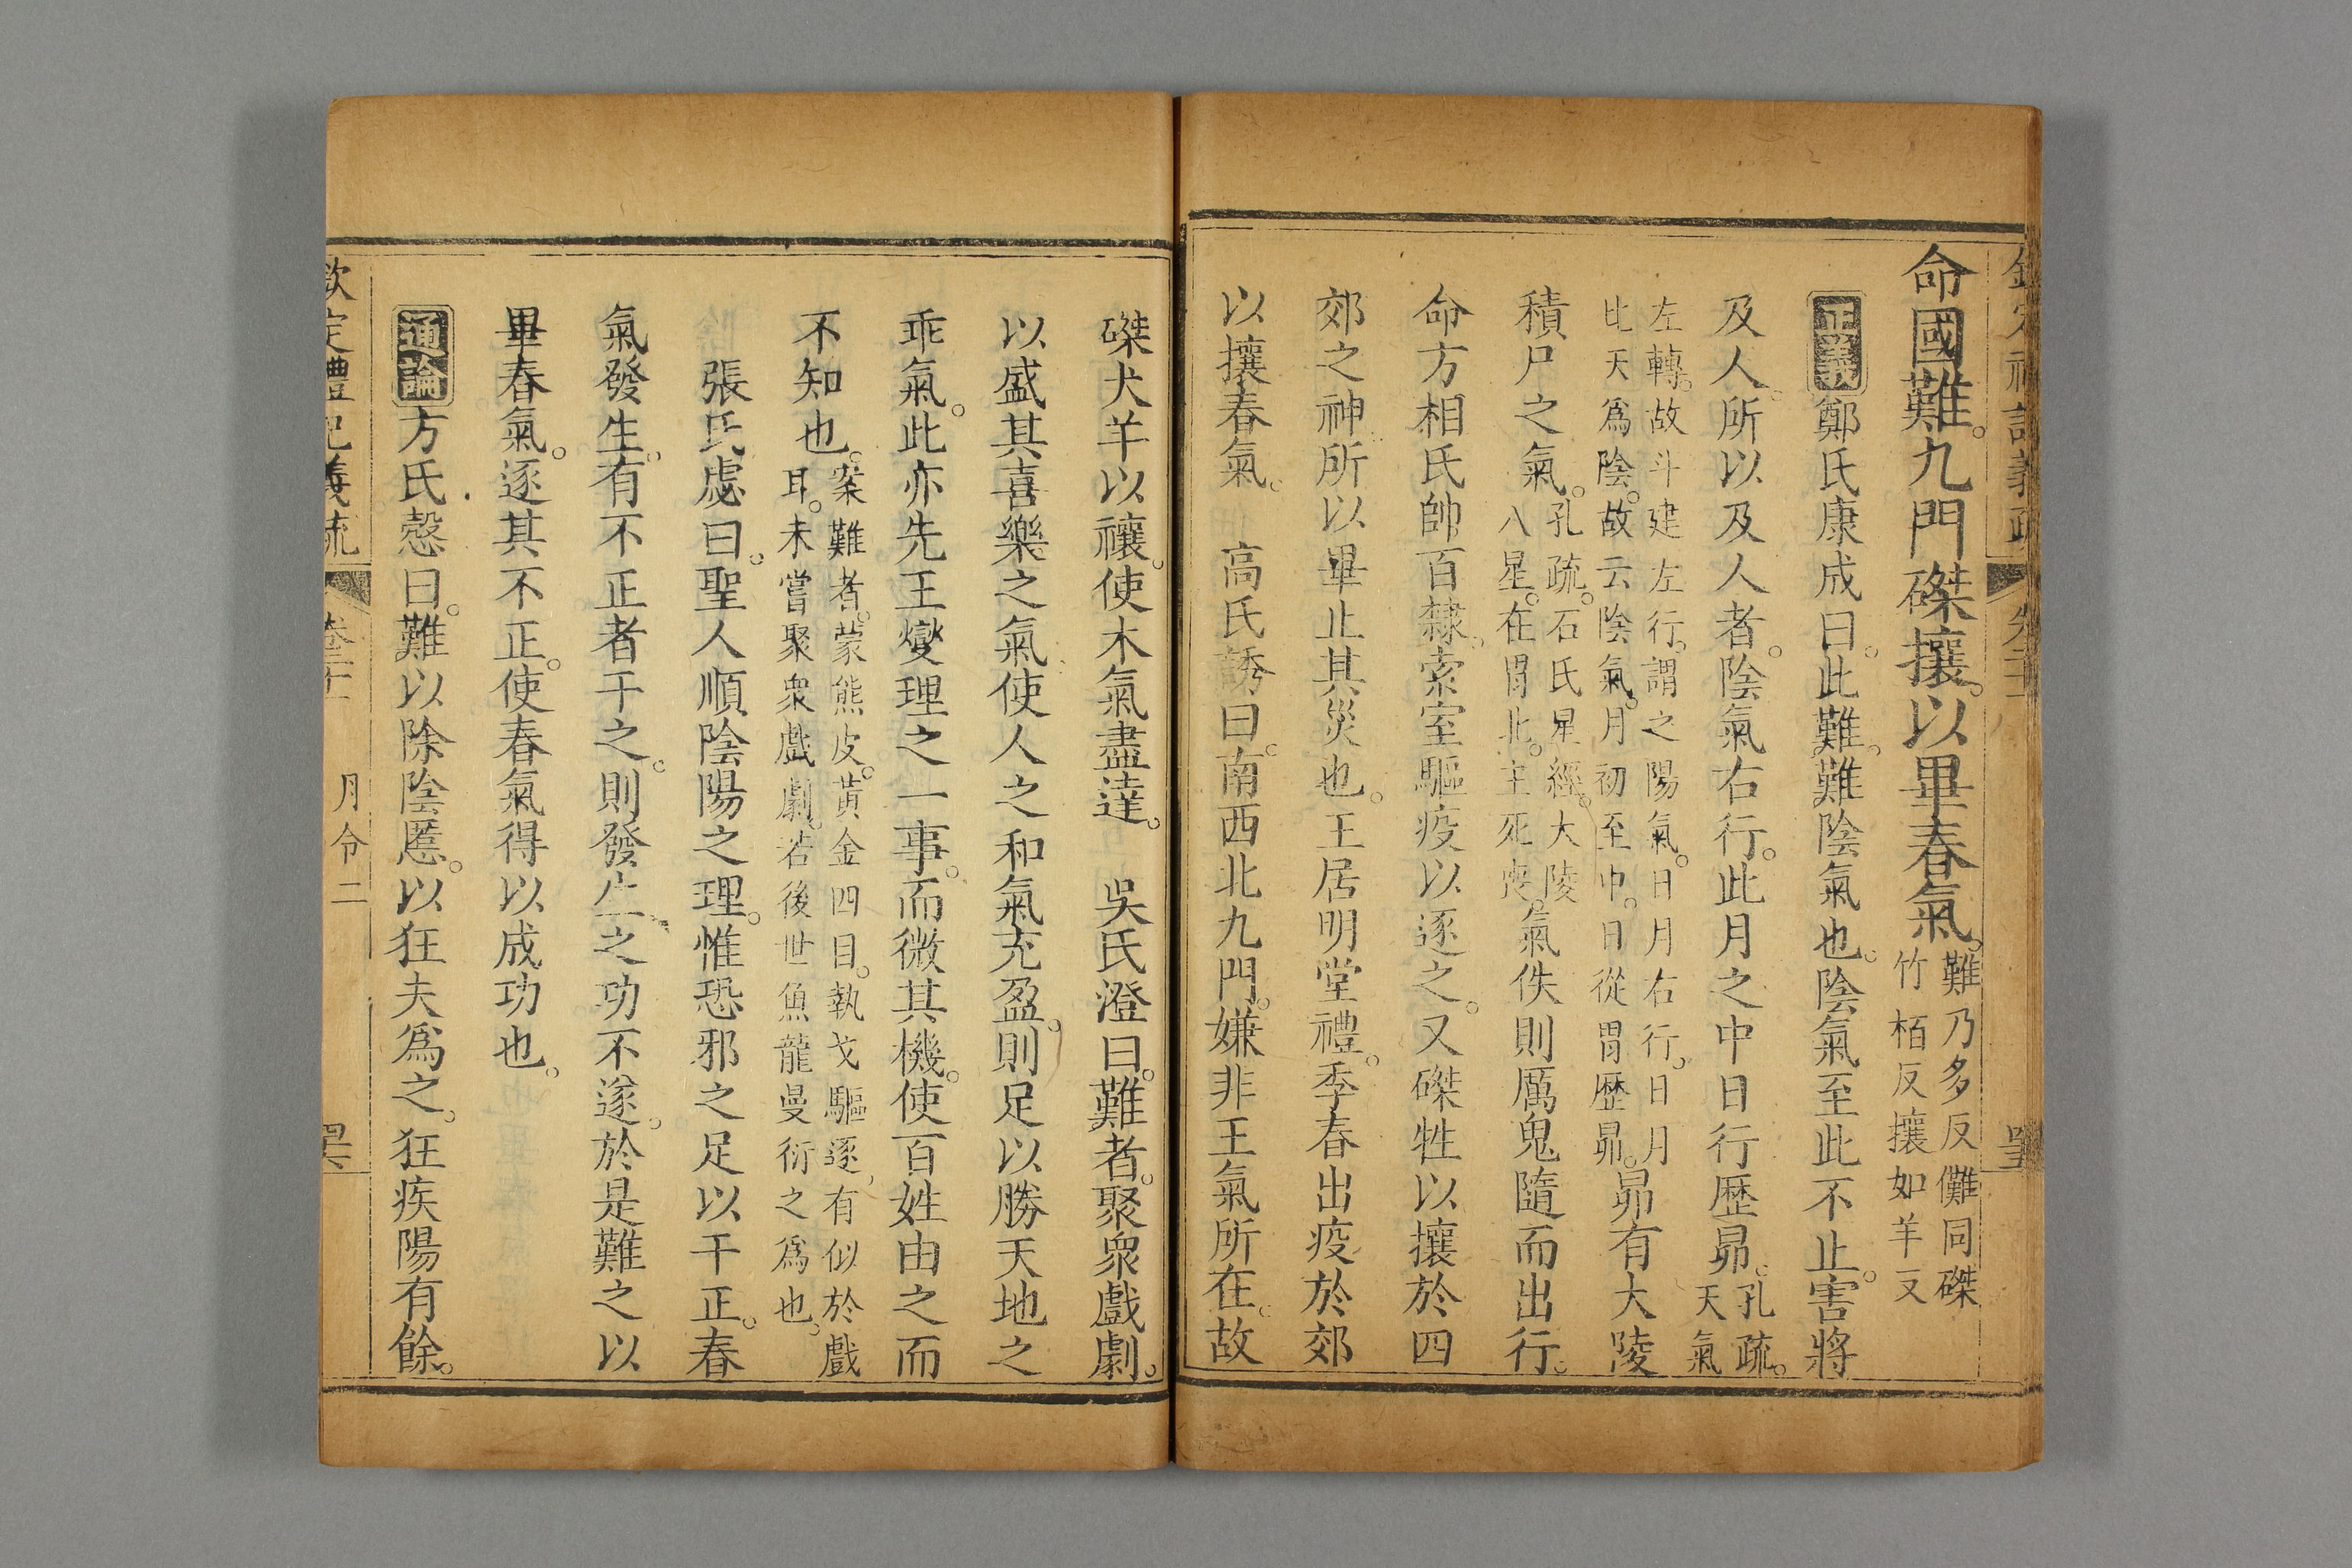 命國難九門磔攘以畢春氣難乃多反儺同磔
竹栢反攘如羊反
正義鄭氏康成曰此難難陰氣也陰氣至此不止害將
及人所以及人者陰氣右行此月之中日行歷昴孔疏
天氣
左轉故斗建左行謂之陽氣日月右行日月
比天爲陰故云陰氣月初至中日從胃歷昴昴有大陵
積尸之氣孔疏石氏星經大陵
八星在胃北主死喪氣佚則厲鬼隨而出行
命方相氏帥百隸索室驅疫以逐之又磔牲以攘於四
郊之神所以畢止其災也王居明堂禮季春出疫於郊
以攘春氣 高氏誘曰南西北九門嫌非王氣所在故
磔犬羊以禳使木氣盡達 吳氏澄曰難者聚衆戲劇
以盛其喜樂之氣使人之和氣充盈則足以勝天地之
乖氣此亦先王燮理之一事而微其機使百姓由之而
不知也案難者蒙熊皮黃金四目執戈驅逐有似於戲
耳未嘗聚衆戲劇若後世魚龍曼衍之爲也
張氏虙曰聖人順陰陽之理惟恐邪之足以干正春
氣發生有不正者干之則發生之功不遂於是難之以
畢春氣逐其不正使春氣得以成功也
通論方氏慤曰難以除陰慝以狂夫爲之狂疾陽有餘
欽定禮記義疏 月令二